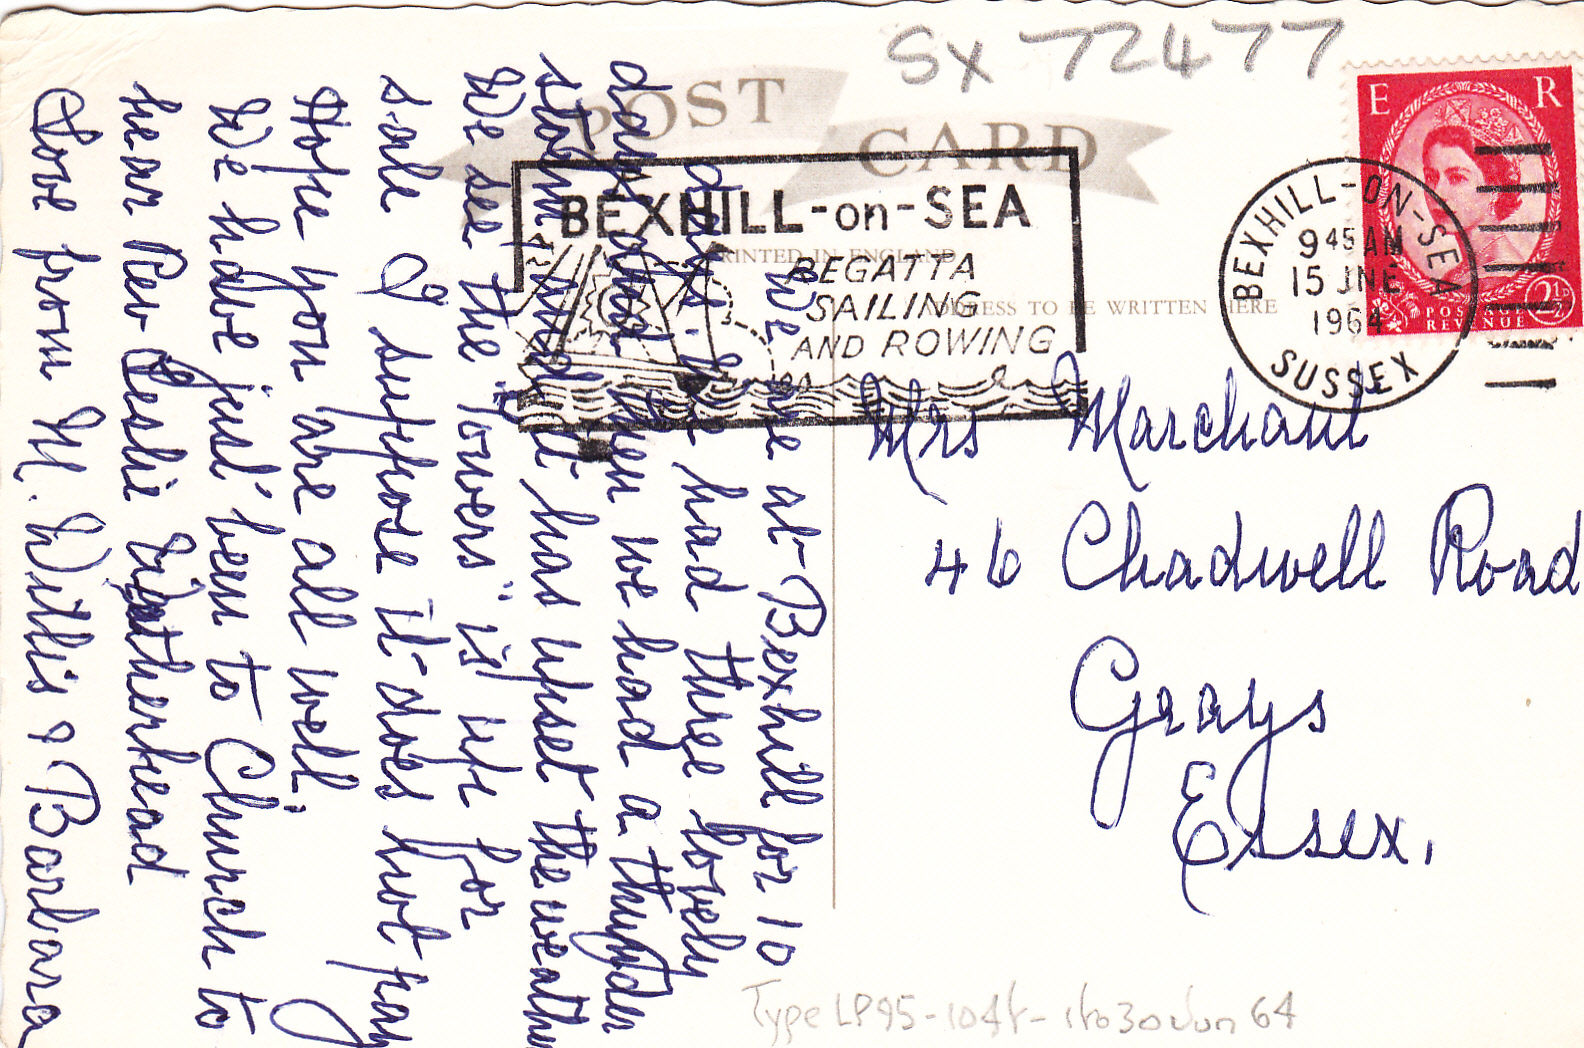 SX 72477
POST
CARD
E R
BEXHILL-on-SEA
REGATTA
SAILING
AND ROWING
PRINTED IN ENGLAND
ADDRESS TO BE WRITTEN HERE
BEXHILL-ON-SEA
9 45 AM
15 JNE
1964
SUSSEX
POSTAGE
REVENUE
2½D
We are at Bexhill for 10
days. We had three lovely
days and then we had a thunder
storm and it has upset the weather
We see the "Towers" is up for
sale I suppose it does not pay
Hope you are all well.
We have just been to Church to
hear Rev Leslie Weatherhead
Love from M. Willis & Barbara
Mrs Marchant
46 Chadwell Road
Grays
Essex.
Type LP95-104f- 1to30 Jun 64